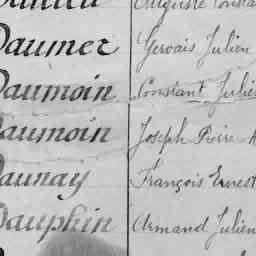 Auguste
Daumer Gervais Julien
Daumoin Constant Julien
Daumoin Joseph Pierre
Daunay François Ernest
Dauphin Armand Julien